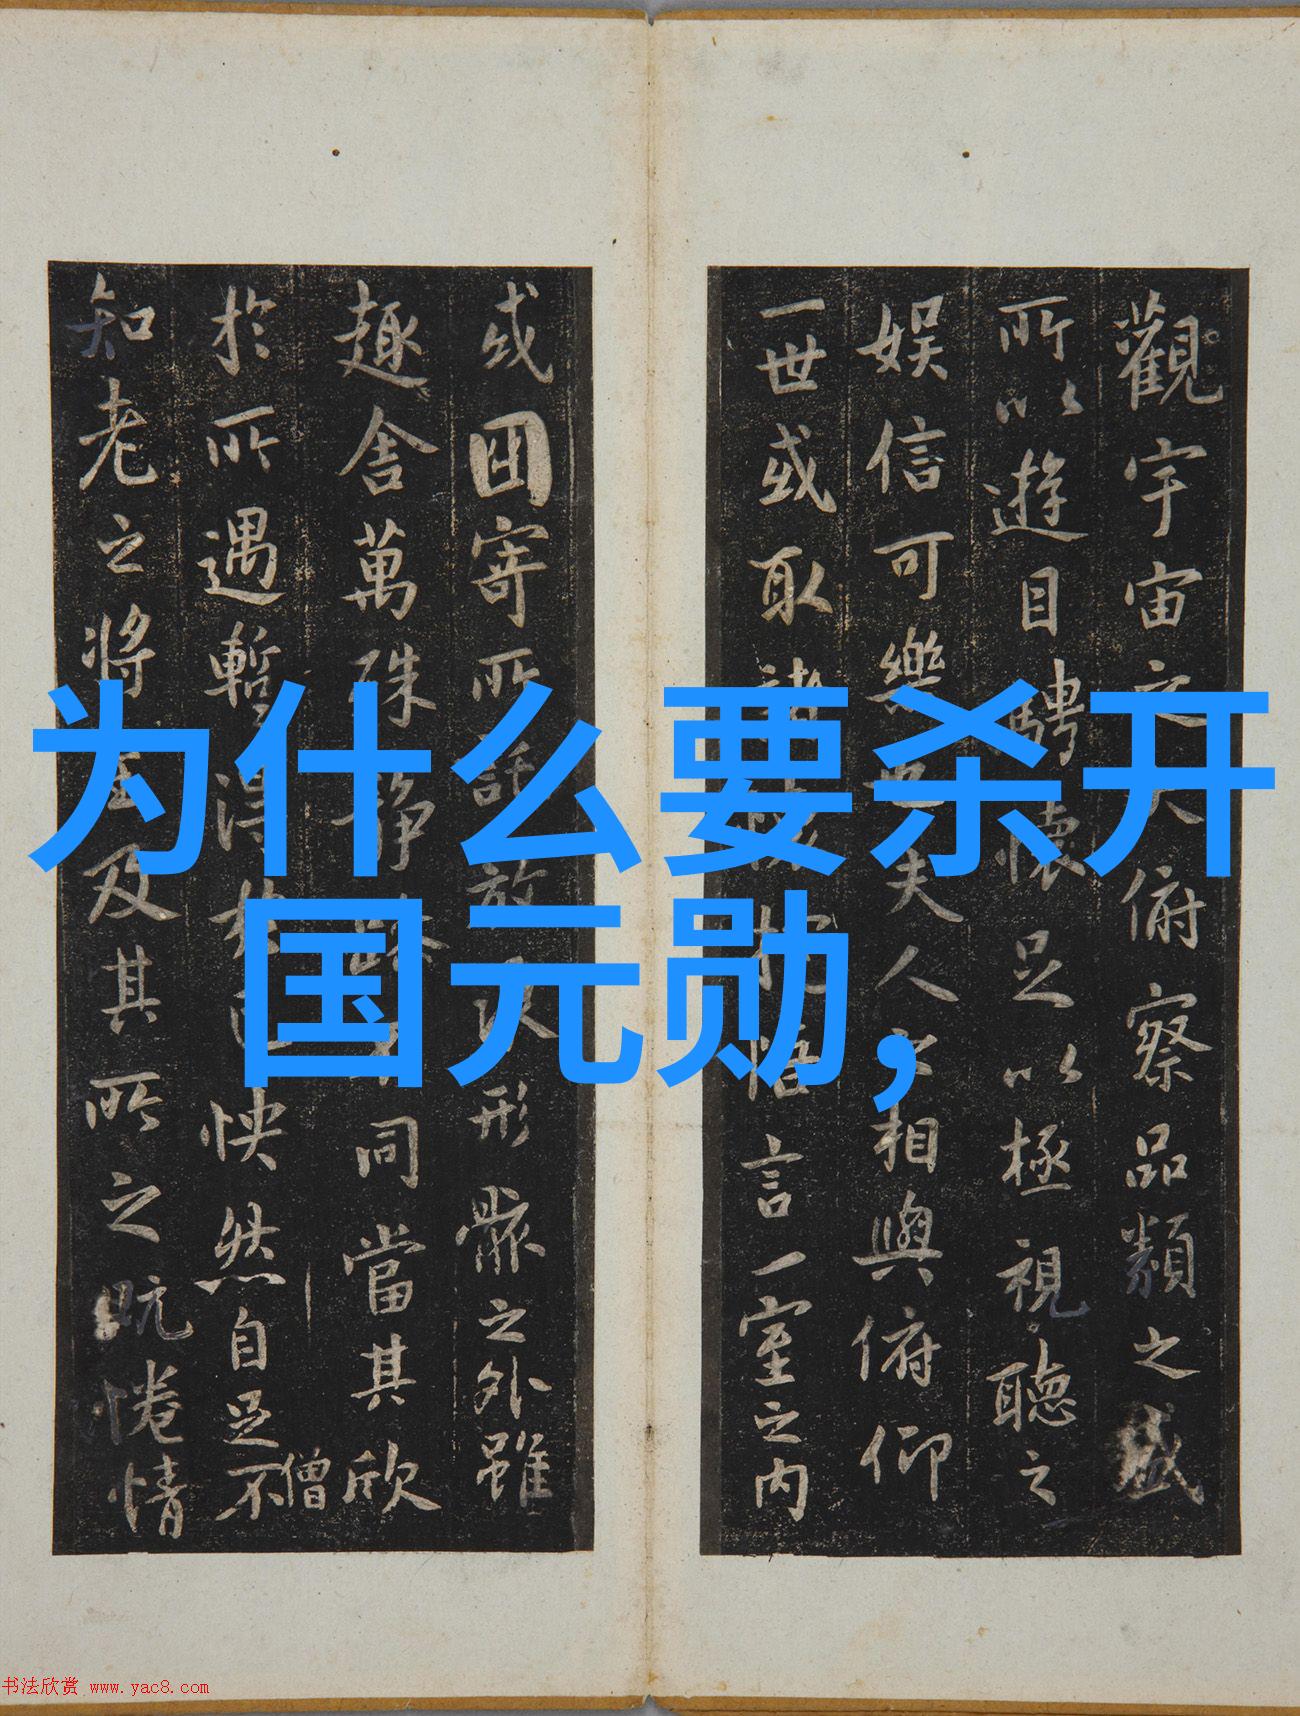 为什么要杀开
国元勋，
觀宇宙之大俯察品類之盛
所以遊目騁懷足以極視聽之
娱信可樂也夫人之相與俯仰
一世或取諸懷抱悟言一室之内
或因寄所託放浪形骸之外雖
趣舍萬殊静躁不同當其欣
於所遇暫得於己怏然自足不
僧
知老之將至及其所之既惓情
书法欣赏 www.yac8.com